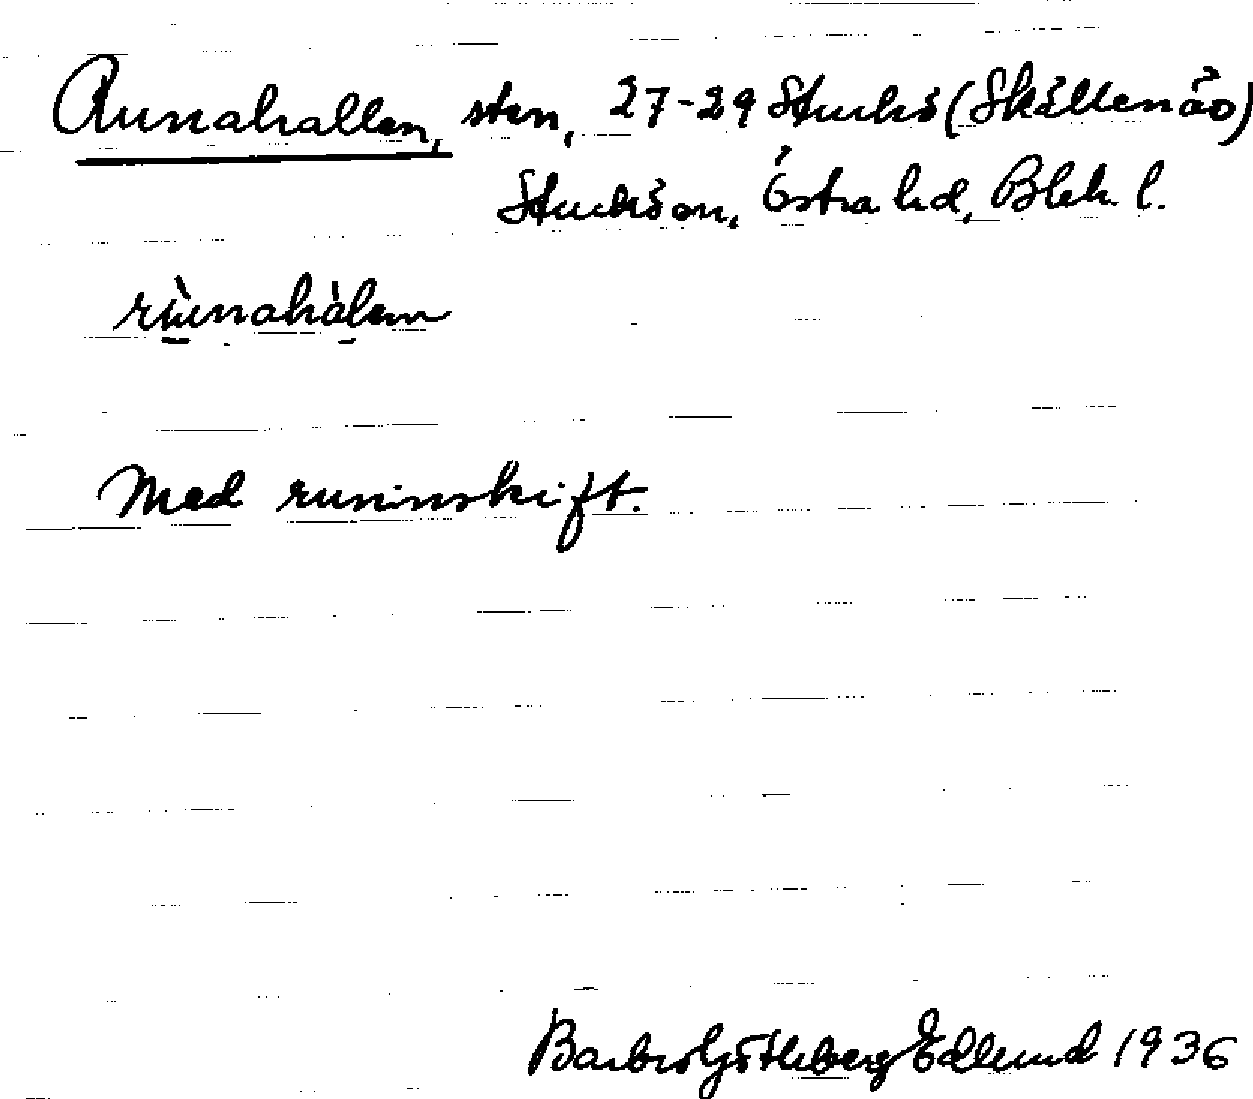 Runahallen, sten, 27-29 Sturkö (Skällenäs)
Sturkö sn, Östra hd, Blek. l.
rùnahàlen
Med runinskrift.
Barbro Götheberg Edlund 1936